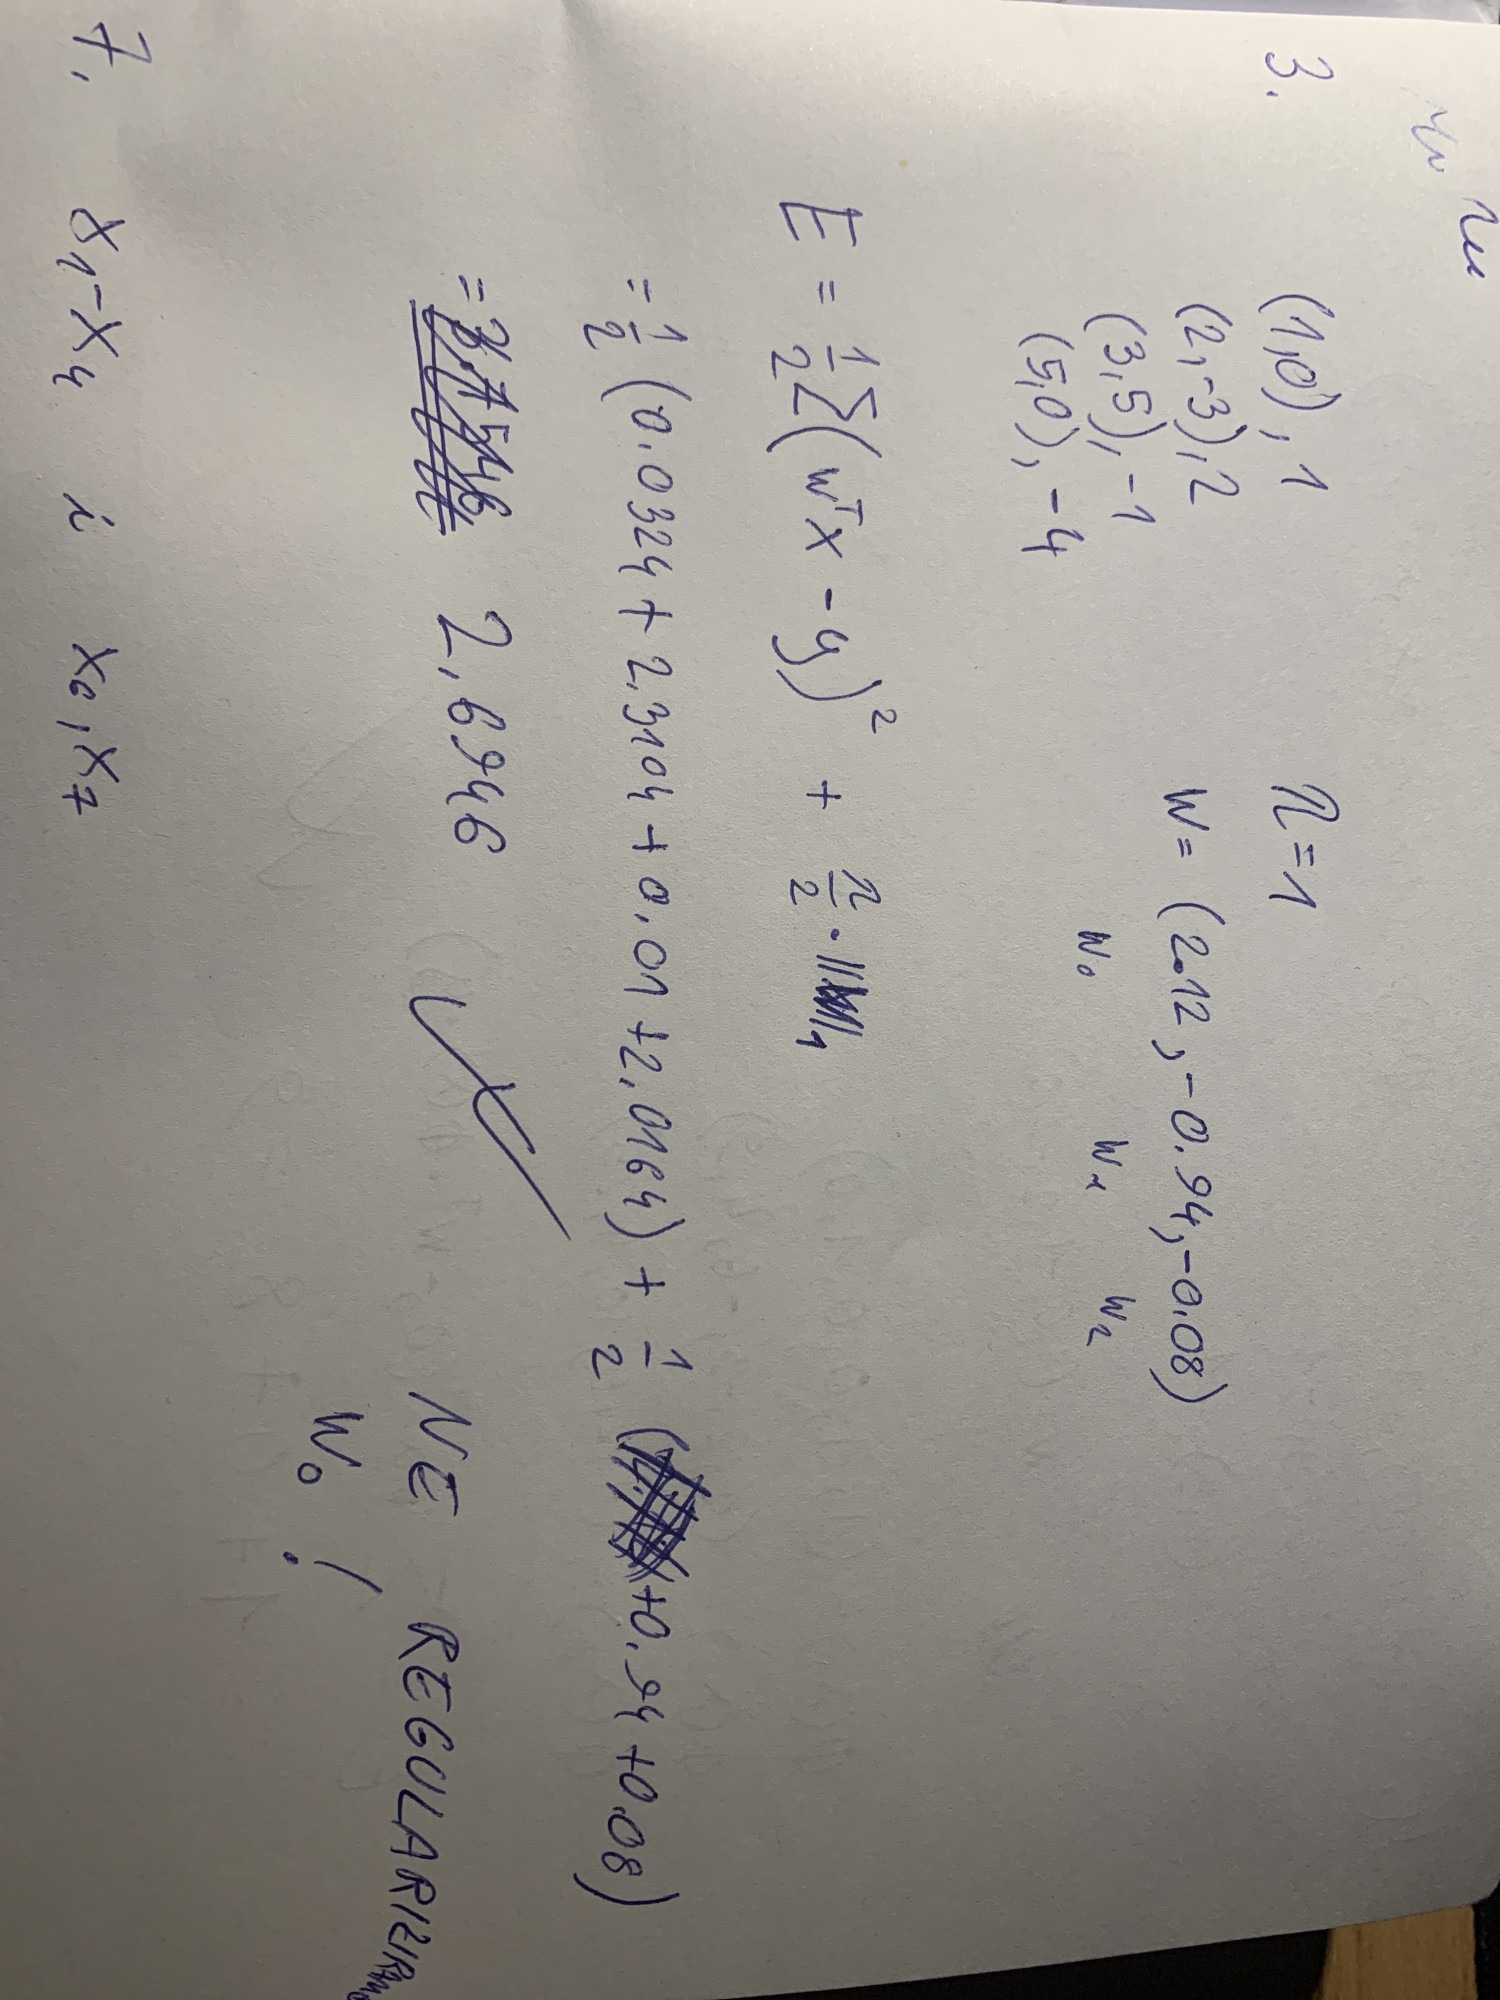 3. (1,0), 1 λ=1
(2,-3), 2 w= (2.12, -0.94, -0.08)
(3,5), -1 w₀ w₁ w₂
(5,0), -4
E = 1/2 Σ(wᵀx - y)² + λ/2 · ‖w‖₁
= 1/2 (0.0324 + 2.3104 + 0.01 + 2.0164) + 1/2 (+0.94 + 0.08)
= 2.6946 NE REGULARIZIRAMO
w₀ !
7. x₁-x₄ i x₆, x₇